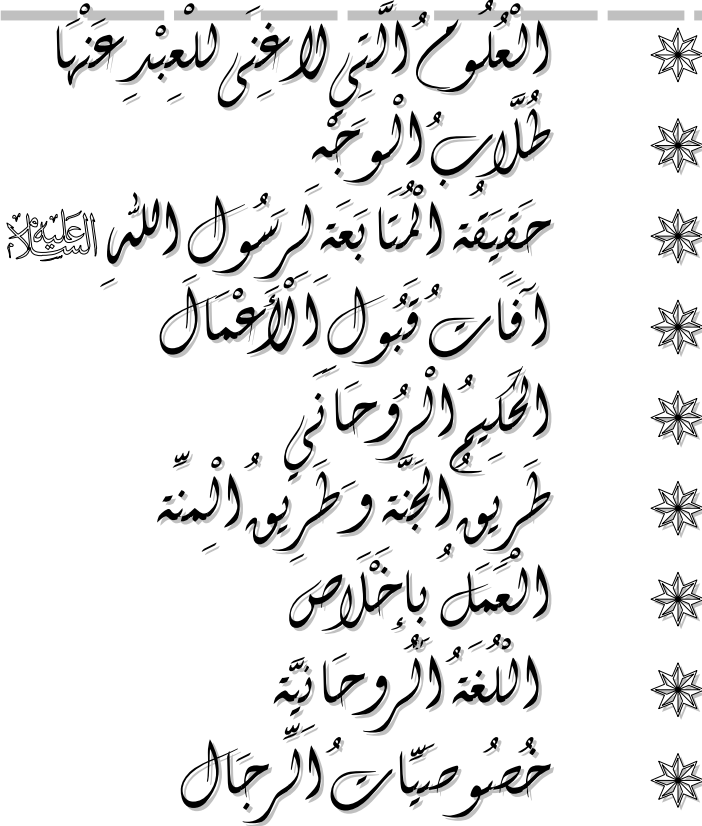 الْعُلُومُ الَّتِي لَا غِنَى لِلْعَبْدِ عَنْهَا
طُلَّابُ الْوَجْه
حَقِيقَةُ الْمُتَابَعَة لِرَسُولِ اللهِ عليه السلام
آفَاتُ قَبُولِ الْأَعْمَالِ
الْحَكِيمُ الرُّوحَانِي
طَرِيقُ الْجَنَّة وَطَرِيقُ الْمِنَّة
الْعَمَلُ بِإِخْلَاص
اللُّغَةُ الرُّوحَانِيَّة
خُصُوصِيَّاتُ الرِّجَال